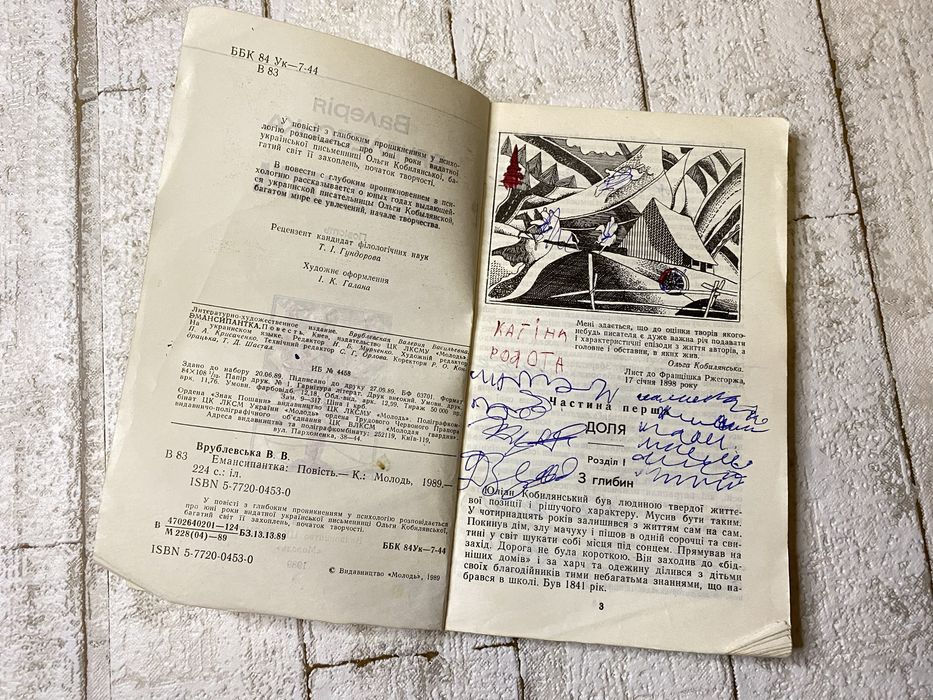 ББК 84 Ук—7-44
В 83
У повісті з глибоким проникненням у психо-
логію розповідається про юні роки видатної
української письменниці Ольги Кобилянської, ба-
гатий світ її захоплень, початок творчості.
В повести с глубоким проникновением в пси-
хологию рассказывается о юных годах выдающей-
ся украинской писательницы Ольги Кобылянской,
багатом мире ее увлечений, начале творчества.
Рецензент кандидат філологічних наук
Т. І. Гундорова
Художнє оформлення
І. К. Галана
Литературно-художественное издание. Врублевская Валерия Васильевна.
ЭМАНСИПАНТКА. Повесть. Киев, издательство ЦК ЛКСМУ «Молодь».
На украинском языке. Редактор
П. А. Крисаченко. Технічний редактор С. Г. Орлова. Коректори Р. О.
Т. Д. Шастал.
ИБ № 4458
Здано до набору 20.06.89. Підписано до друку 27.09.89. БФ 03701. Формат
84×108 1/32. Папір друк. № 1. Гарнітура літерат. Друк високий. Умовн. друк.
арк. 11,76. Умовн. фарбовідб. 12,18. Обл.-вид. арк. 12,99. Тираж 50 000 пр.
Зам. 9—317 Ціна 1 крб.
Ордена «Знак Пошани» видавництво ЦК ЛКСМУ «Молодь». Поліграфком-
бінат ЦК ЛКСМ України «Молодь» ордена Трудового Червоного Прапора
видавничо-поліграфічного об'єднання ЦК ВЛКСМ «Молодая гвардия».
Адреса видавництва та поліграфкомбінату: 252119, Київ-119,
вул. Пархоменка, 38—44.
Врублевська В. В.
В 83 Емансипантка: Повість.— К.: Молодь, 1989.—
224 с.: іл.
ISBN 5-7720-0453-0
У повісті з глибоким проникненням у психологію розповідається
про юні роки видатної української письменниці Ольги Кобилянської,
багатий світ її захоплень, початок творчості.
В 4702640201—124 БЗ.13.13.89
М 228(04)—89
ББК 84Ук—7-44
ISBN 5-7720-0453-0
© Видавництво «Молодь», 1989
Мені здається, що до оцінки творів якого-
небудь писателя є дуже важна річ подавати
і характеристичні епізоди з життя авторів, а
головне і обставин, в яких жив.
Ольга Кобилянська.
Лист до Францішка Ржегоржа,
17 січня 1898 року
КАТІНА
РОБОТА
Частина перша
ДОЛЯ
Розділ I
З глибин
Юліан Кобилянський був людиною твердої життє-
вої позиції і рішучого характеру. Мусив бути таким.
У чотирнадцять років залишився з життям сам на сам.
Покинув дім, злу мачуху і пішов в одній сорочці та сви-
тині у світ шукати собі місця під сонцем. Прямував на
захід. Дорога не була короткою. Він заходив до «бід-
ніших домів» і за харч та одежину ділився з дітьми
своїх благодійників тими небагатьма знаннями, що на-
брався в школі. Був 1841 рік.
3